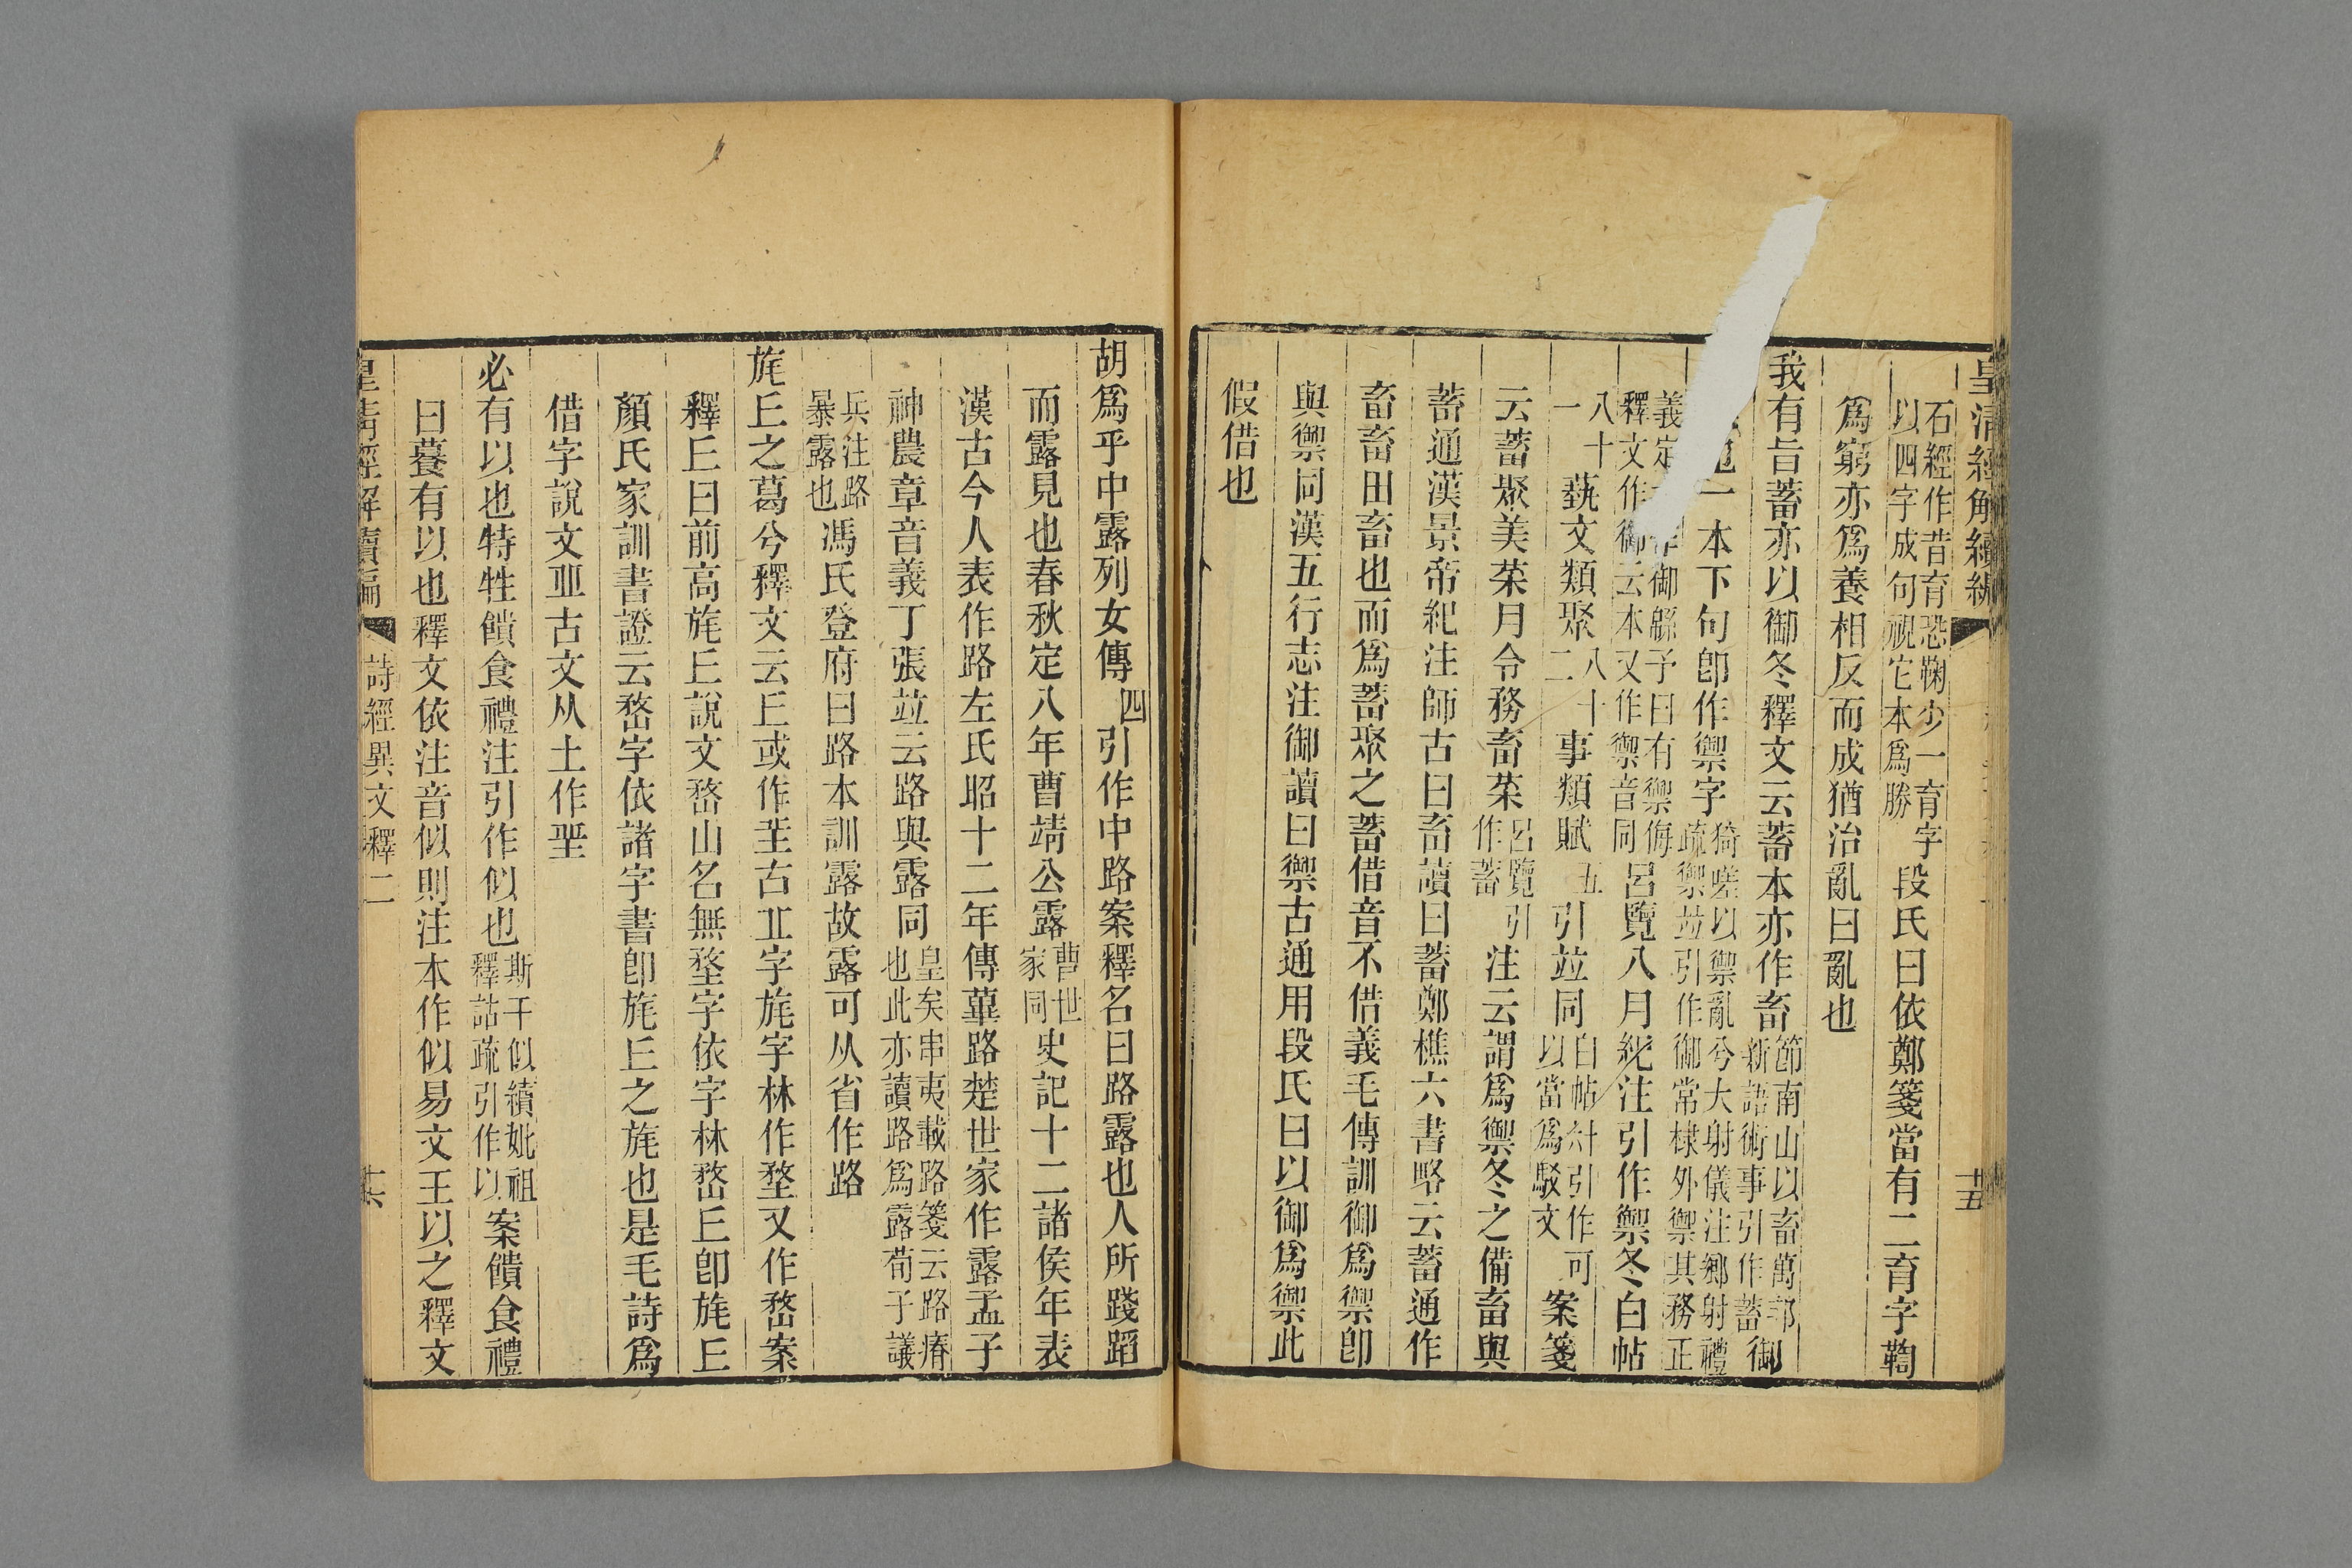 皇清經解續編
十五
石經作昔育恐鞠少一育字
以四字成句視它本爲勝
段氏曰依鄭箋當有二育字鞫
爲窮亦爲養相反而成猶治亂曰亂也
我有旨蓄亦以御冬釋文云蓄本亦作畜
節南山以畜萬邦
新語術事引作蓄
御
一本下句卽作禦字
猗嗟以禦亂兮大射儀注鄉射禮
疏禦竝引作御常棣外禦其務正
義定
御緜予曰有禦侮
釋文作御云本又作禦音同
呂覽八月紀注引作禦冬白帖
八十
一
藝文類聚
八十
二
事類賦
五
引竝同
白帖卄引作可
以當爲駁文
案箋
云蓄聚美菜月令務畜菜
呂覽引
作蓄
注云謂爲禦冬之備畜與
蓄通漢景帝紀注師古曰畜讀曰蓄鄭樵六書略云蓄通作
畜畜田畜也而爲蓄聚之蓄借音不借義毛傳訓御爲禦卽
與禦同漢五行志注御讀曰禦古通用段氏曰以御爲禦此
假借也
胡爲乎中露列女傳
四
引作中路案釋名曰路露也人所踐蹈
而露見也春秋定八年曹靖公露
曹世
家同
史記十二諸侯年表
漢古今人表作路左氏昭十二年傳蓽路楚世家作露孟子
神農章音義丁張竝云路與露同
皇矣串夷載路箋云路瘠
也此亦讀路爲露荀子議
兵注路
暴露也
馮氏登府曰路本訓露故露可从省作路
旄丘之葛兮釋文云丘或作𠀌古丘字旄字林作堥又作嵍案
釋丘曰前高旄丘說文嵍山名無堥字依字林嵍丘卽旄丘
顏氏家訓書證云嵍字依諸字書卽旄丘之旄也是毛詩爲
借字說文丘古文从土作𡊣
必有以也特牲饋食禮注引作似也
斯干似續妣祖
釋詁疏引作以
案饋食禮
曰養有以也釋文依注音似則注本作似易文王以之釋文
皇清經解續編
詩經異文釋二
十六